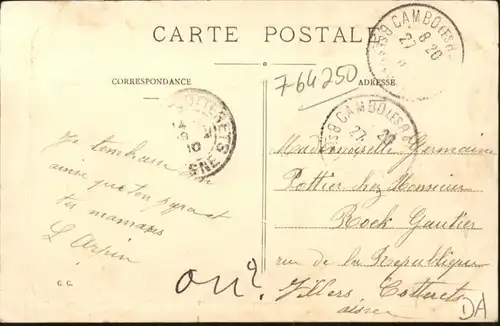 CARTE POSTALE
CAMBO LES B
27-8 20
764250
CORRESPONDANCE
ADRESSE
CAMBO LES B
27 20
COTTERETS
Je t'embrasse
ainsi que ton
ta maman
L Arpin
Mademoiselle Germaine
Pottier chez Monsieur
Rock Gautier
rue de la République
Villers Cotterets
aisne
G. G.
on?
DA